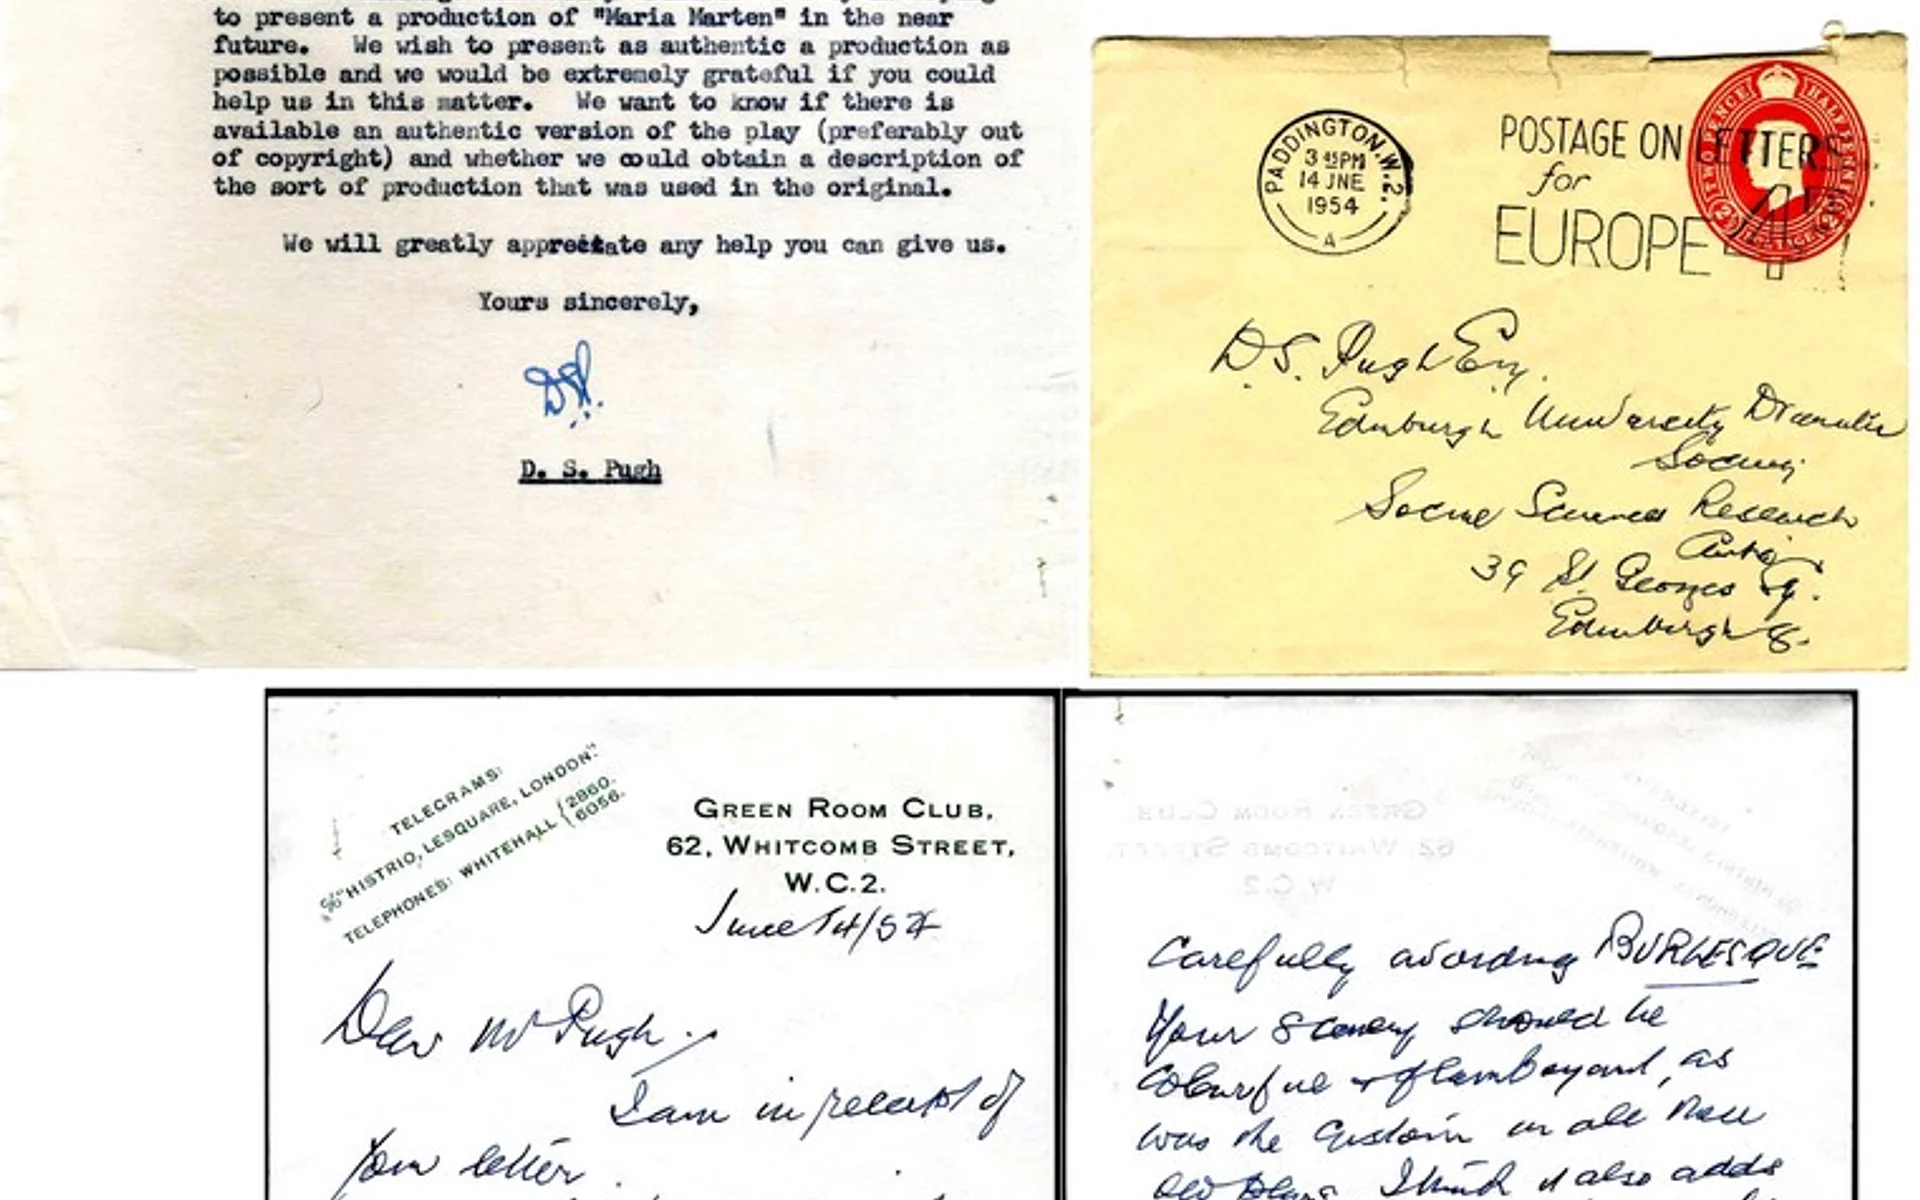 to present a production of "Maria Marten" in the near
future. We wish to present as authentic a production as
possible and we would be extremely grateful if you could
help us in this matter. We want to know if there is
available an authentic version of the play (preferably out
of copyright) and whether we could obtain a description of
the sort of production that was used in the original.
We will greatly appreciate any help you can give us.
Yours sincerely,
D. S. Pugh
PADDINGTON.W.2.
3 45PM
14 JNE
1954
A
POSTAGE ON LETTERS
for
EUROPE 4D
TWO PENCE HALF PENNY
D. S. Pugh Esq.
Edinburgh University Dramatic
Society
Social Sciences Research
39 St Georges Sq.
Edinburgh 8.
TELEGRAMS:
"HISTRIO, LESQUARE, LONDON."
TELEPHONES: WHITEHALL { 2860.
6056.
GREEN ROOM CLUB,
62, WHITCOMB STREET,
W.C.2.
June 14/54
Dear Mr Pugh.
I am in receipt of
your letter
Carefully avoiding BURLESQUE
Your scenery should be
colourful & flamboyant, as
was the custom in all these
old plays. I think it also adds